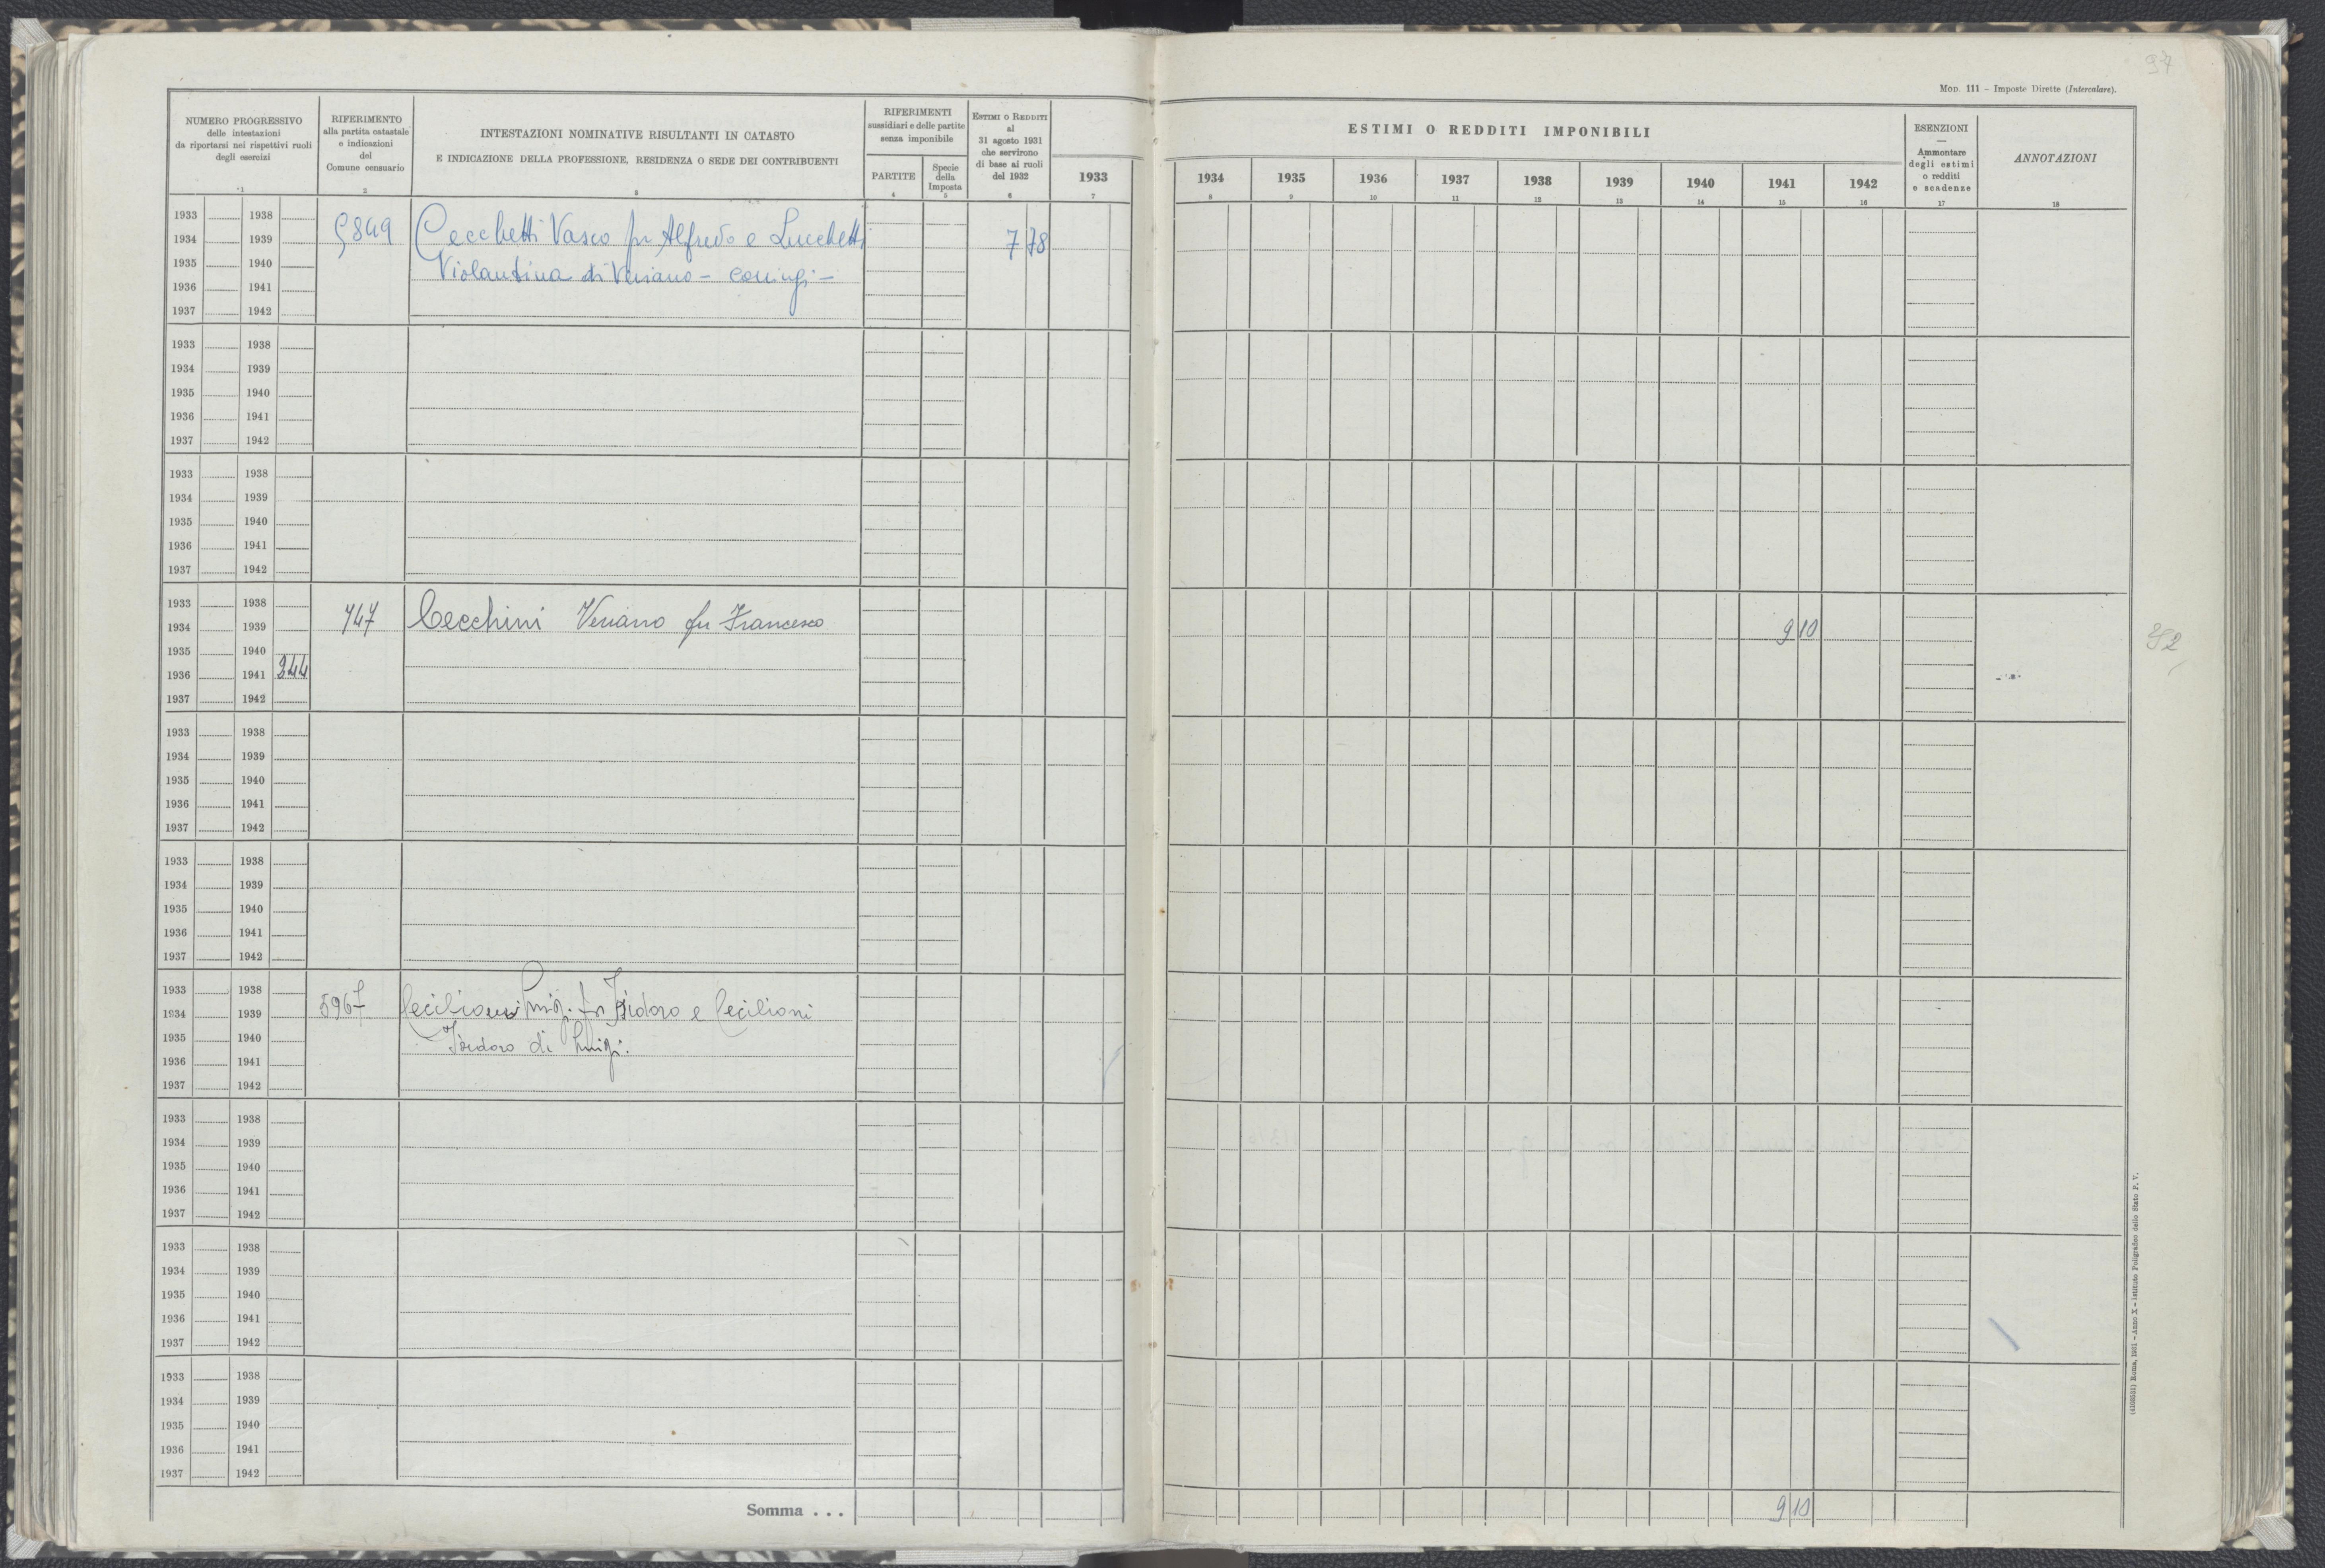 97
MOD. 111 – Imposte Dirette (Intercalare).
NUMERO PROGRESSIVO
delle intestazioni
da riportarsi nei rispettivi ruoli
degli esercizi
1
RIFERIMENTO
alla partita catastale
e indicazioni
del
Comune censuario
2
INTESTAZIONI NOMINATIVE RISULTANTI IN CATASTO
E INDICAZIONE DELLA PROFESSIONE, RESIDENZA O SEDE DEI CONTRIBUENTI
3
RIFERIMENTI
sussidiari e delle partite
senza imponibile
PARTITE
4
Specie
della
Imposta
5
ESTIMI O REDDITI
al
31 agosto 1931
che servirono
di base ai ruoli
del 1932
6
ESTIMI O REDDITI IMPONIBILI
1933 1934 1935 1936 1937 1938 1939 1940 1941 1942
7 8 9 10 11 12 13 14 15 16
ESENZIONI
—
Ammontare
degli estimi
o redditi
e scadenze
17
ANNOTAZIONI
18
1933 1938
1934 1939
1935 1940
1936 1941
1937 1942
5849 Cecchetti Vasco fu Alfredo e Lucchetti 7 78
Violantina di Veriano – coniugi –
1933 1938
1934 1939
1935 1940
1936 1941
1937 1942
1933 1938
1934 1939
1935 1940
1936 1941
1937 1942
1933 1938
1934 1939
1935 1940
1936 1941 344
1937 1942
747 Cecchini Veriano fu Francesco 9 10
1933 1938
1934 1939
1935 1940
1936 1941
1937 1942
1933 1938
1934 1939
1935 1940
1936 1941
1937 1942
1933 1938
1934 1939
1935 1940
1936 1941
1937 1942
5967 Cecilioni Luigi fu Isidoro e Cecilioni
Isidoro di Luigi.
1933 1938
1934 1939
1935 1940
1936 1941
1937 1942
1933 1938
1934 1939
1935 1940
1936 1941
1937 1942
1933 1938
1934 1939
1935 1940
1936 1941
1937 1942
Somma . . . 9 10
(4166531) Roma, 1931 – Anno X – Istituto Poligrafico dello Stato P. V.